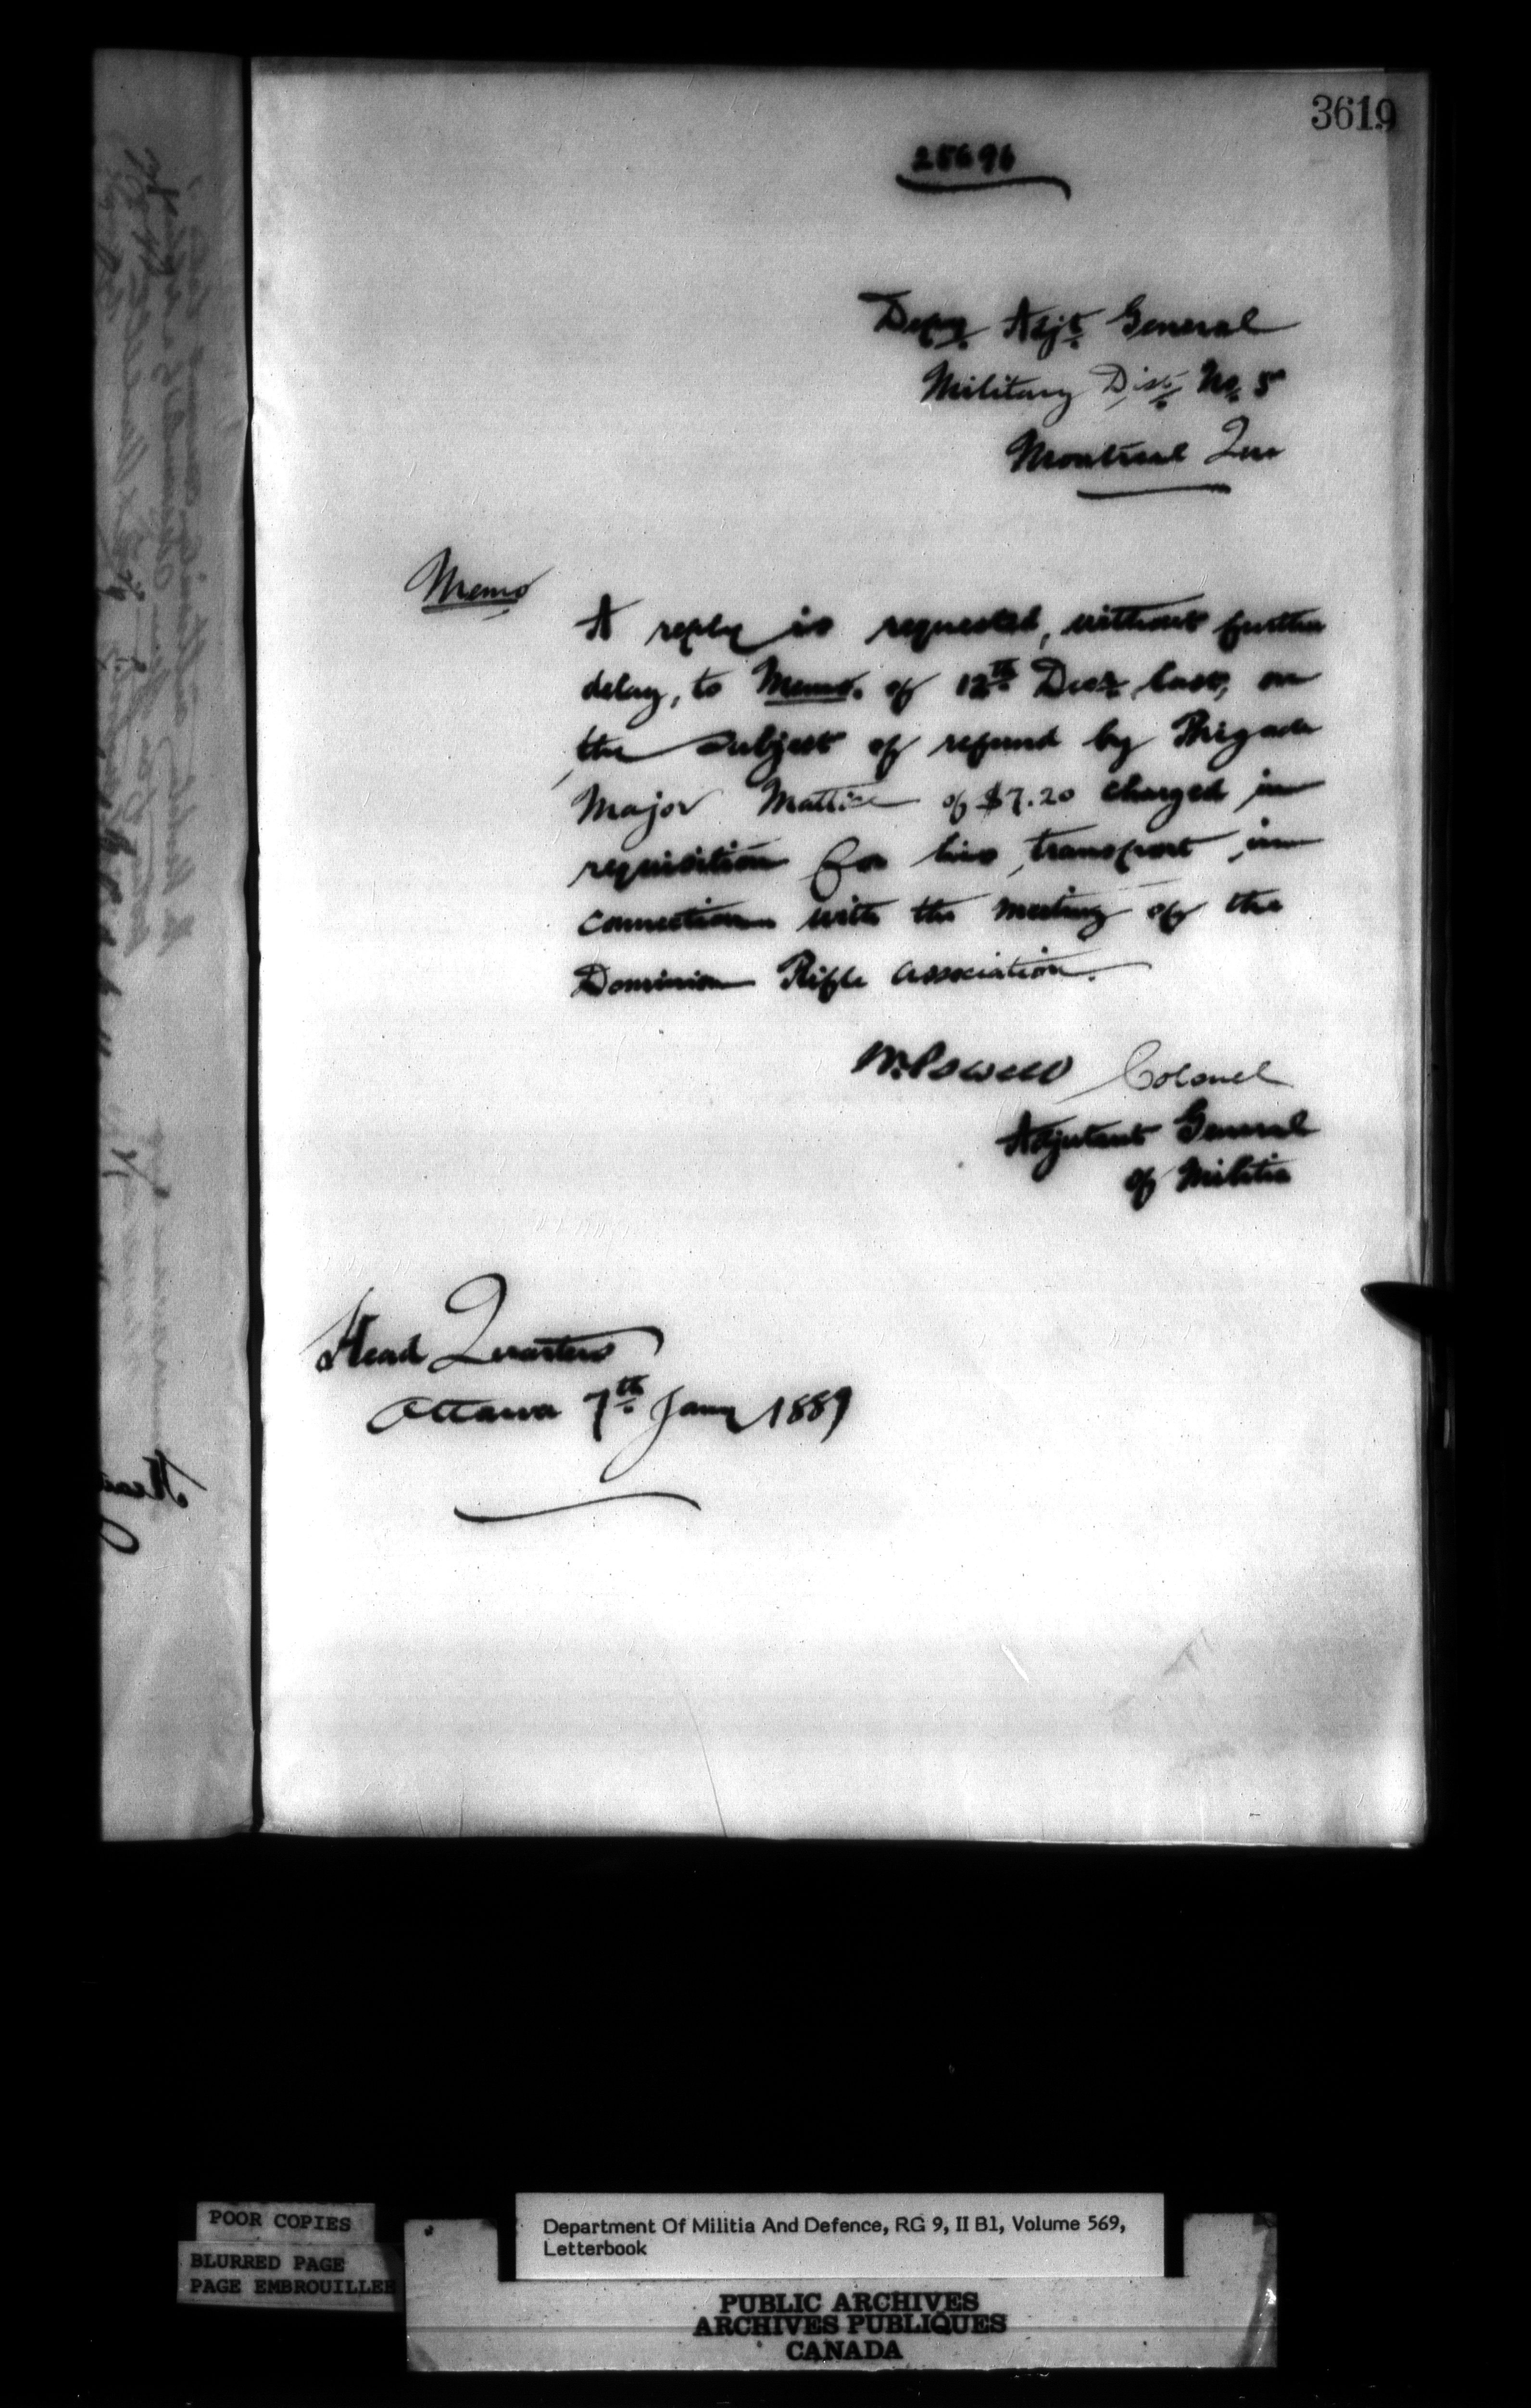 3619
28696
Depy. Adjt. General
Military Dist. No. 5
Montreal Que
Memo
A reply is requested, without further
delay, to Memo. of 12th Decr last, on
the subject of refund by Brigade
Major Mattice of $7.20 charged in
requisition for his transport in
connection with the meeting of the
Dominion Rifle Association.
W. Powell Colonel
Adjutant General
of Militia
Head Quarters
Ottawa 7th Jany 1889
POOR COPIES
BLURRED PAGE
PAGE EMBROUILLEE
Department Of Militia And Defence, RG 9, II B1, Volume 569,
Letterbook
PUBLIC ARCHIVES
ARCHIVES PUBLIQUES
CANADA